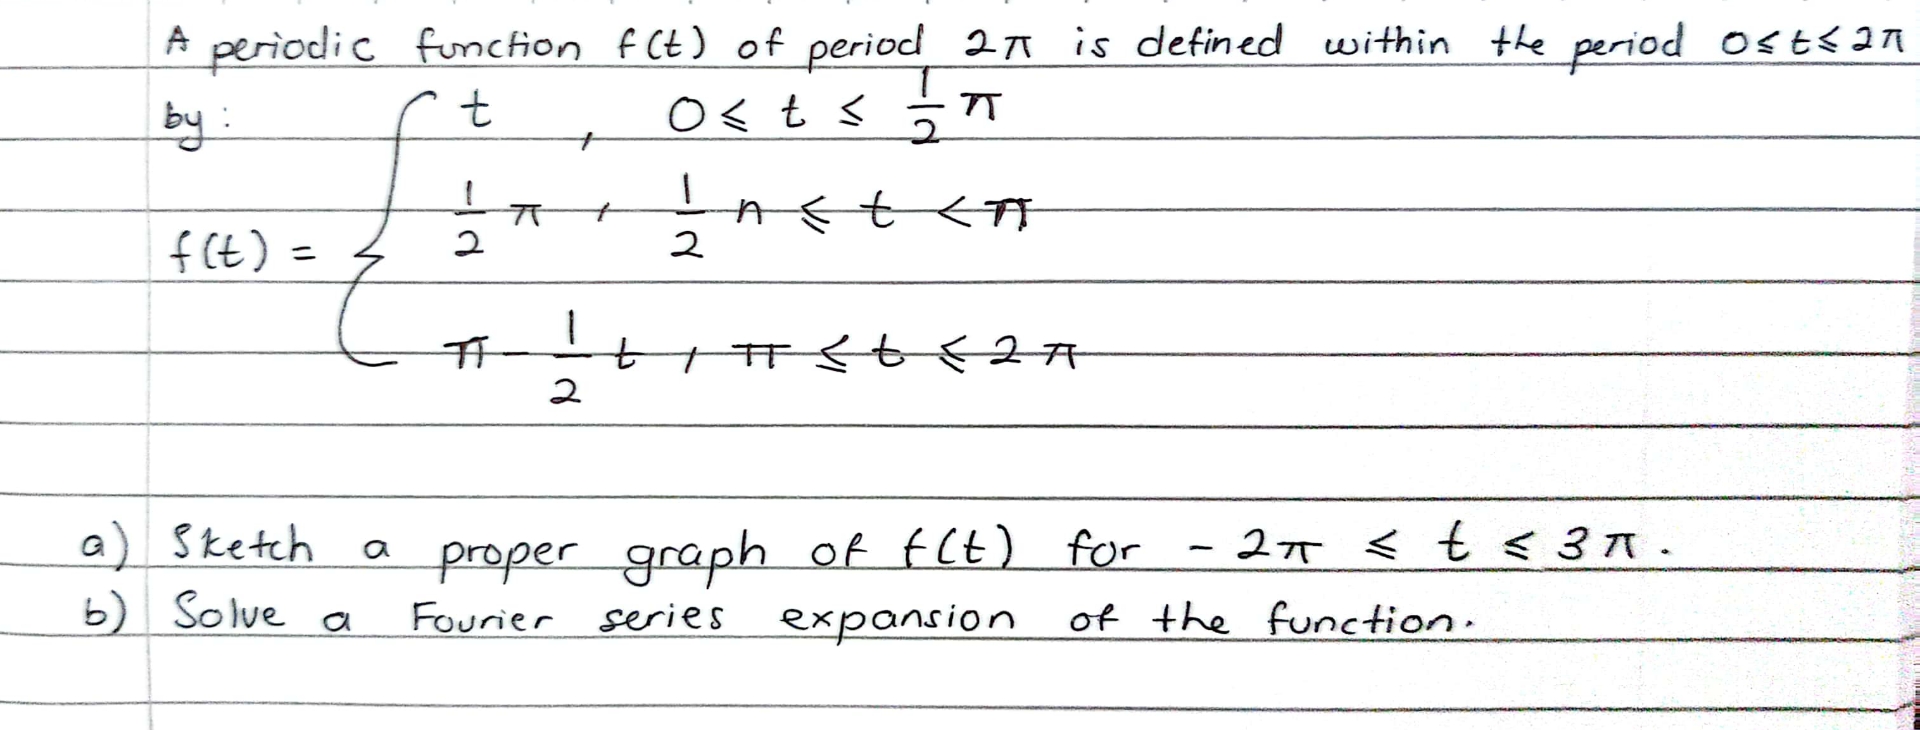 A periodic function f(t) of period 2π is defined within the period 0≤t≤2π
by: t , 0 ≤ t ≤ 1/2 π
1/2 π , 1/2 n ≤ t < π
f(t) = {
π - 1/2 t , π ≤ t ≤ 2π
a) Sketch a proper graph of f(t) for - 2π ≤ t ≤ 3π.
b) Solve a Fourier series expansion of the function.